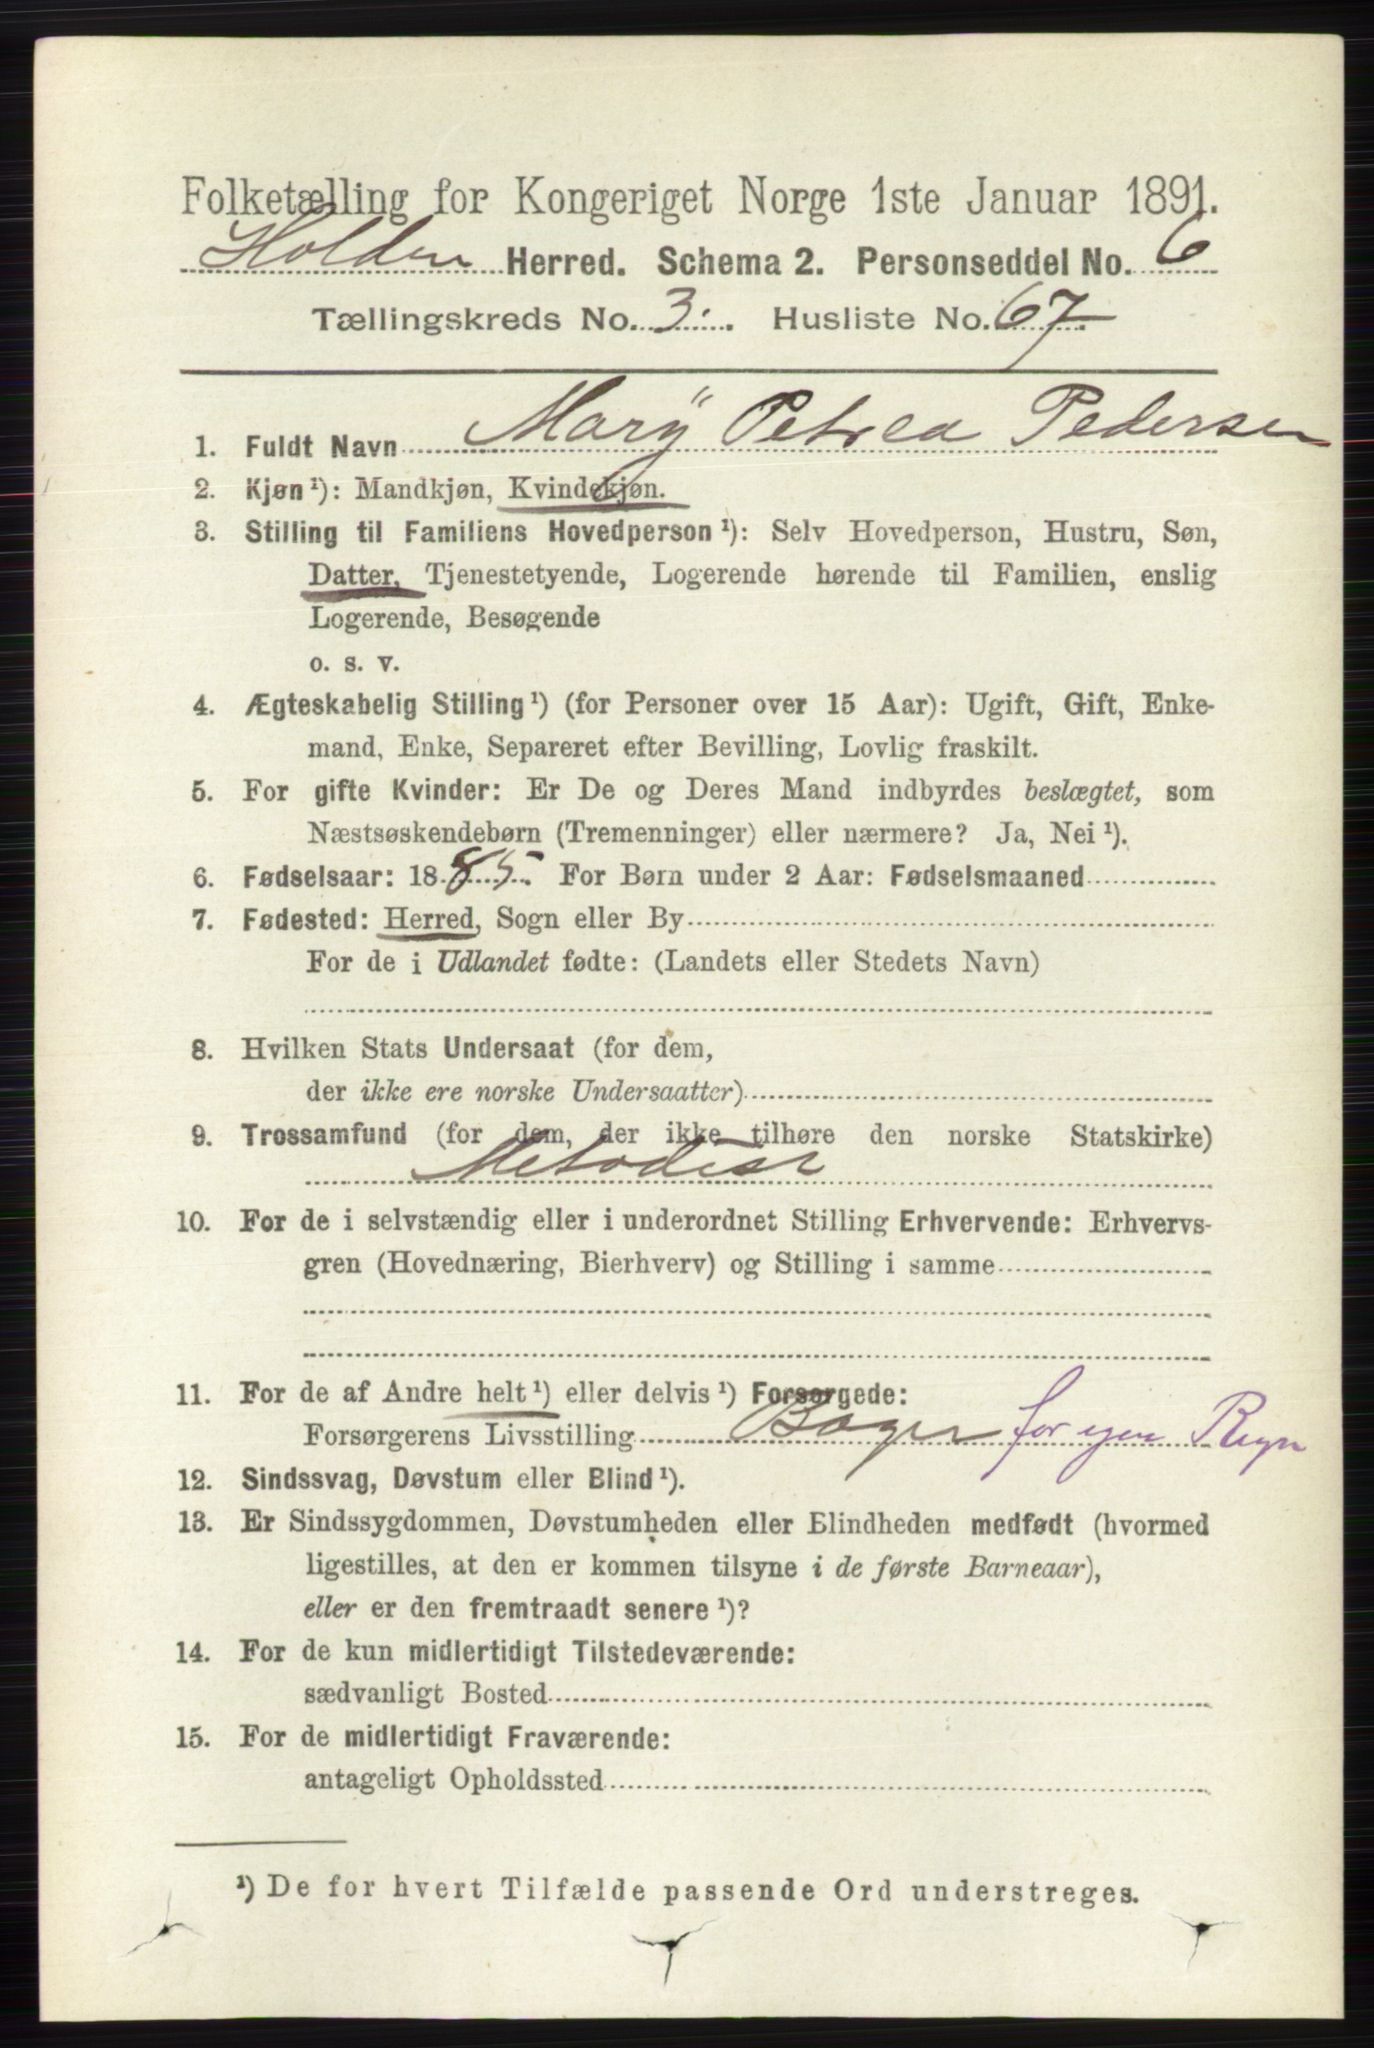 Folketælling for Kongeriget Norge 1ste Januar 1891.
Holden Herred. Schema 2. Personseddel No. 6
Tællingskreds No. 3. Husliste No. 67.
1. Fuldt Navn Marÿ Petrea Pedersen
2. Kjøn ¹): Mandkjøn, Kvindekjøn.
3. Stilling til Familiens Hovedperson ¹): Selv Hovedperson, Hustru, Søn,
Datter, Tjenestetyende, Logerende hørende til Familien, enslig
Logerende, Besøgende
o. s. v.
4. Ægteskabelig Stilling ¹) (for Personer over 15 Aar): Ugift, Gift, Enke-
mand, Enke, Separeret efter Bevilling, Lovlig fraskilt.
5. For gifte Kvinder: Er De og Deres Mand indbyrdes beslægtet, som
Næstsøskendebørn (Tremenninger) eller nærmere? Ja, Nei ¹).
6. Fødselsaar: 1885. For Børn under 2 Aar: Fødselsmaaned
7. Fødested: Herred, Sogn eller By
For de i Udlandet fødte: (Landets eller Stedets Navn)
8. Hvilken Stats Undersaat (for dem,
der ikke ere norske Undersaatter)
9. Trossamfund (for dem, der ikke tilhøre den norske Statskirke)
Metodist
10. For de i selvstændig eller i underordnet Stilling Erhvervende: Erhvervs-
gren (Hovednæring, Bierhverv) og Stilling i samme
11. For de af Andre helt ¹) eller delvis ¹) Forsørgede:
Forsørgerens Livsstilling Bager for egen Regn
12. Sindssvag, Døvstum eller Blind ¹).
13. Er Sindssygdommen, Døvstumheden eller Blindheden medfødt (hvormed
ligestilles, at den er kommen tilsyne i de første Barneaar),
eller er den fremtraadt senere ¹)?
14. For de kun midlertidigt Tilstedeværende:
sædvanligt Bosted
15. For de midlertidigt Fraværende:
antageligt Opholdssted
¹) De for hvert Tilfælde passende Ord understreges.